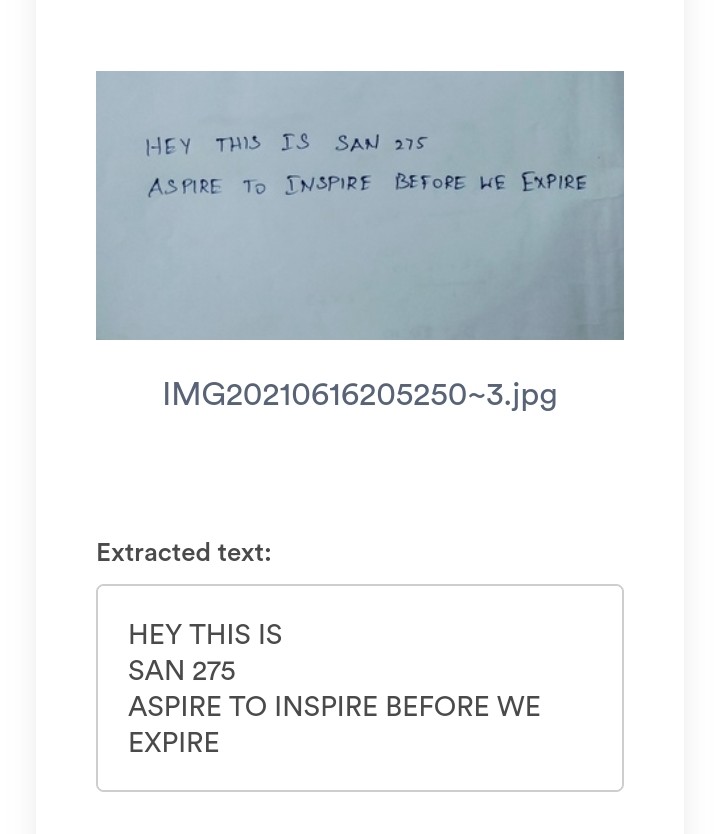 HEY THIS IS SAN 275
ASPIRE TO INSPIRE BEFORE WE EXPIRE
IMG20210616205250~3.jpg
Extracted text:
HEY THIS IS
SAN 275
ASPIRE TO INSPIRE BEFORE WE
EXPIRE